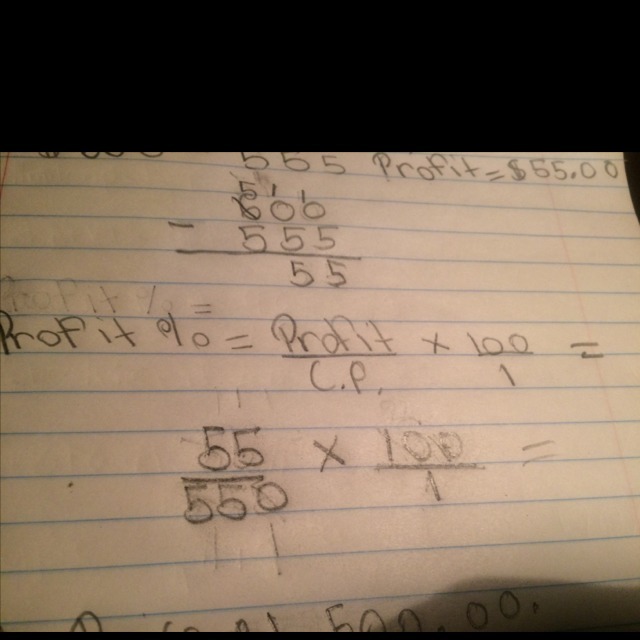 555 Profit=$55.00
5 1 1
600
- 555
55
Profit % = Profit x 100 =
C.P 1
11
55 x 100 =
550 1
11
500.00.